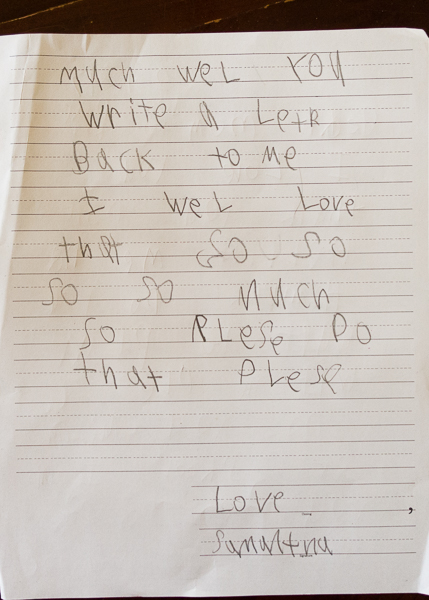 much wel you
write a Letr
Back to me
I wel Love
that so so
so so much
so Plese Do
that Plese
Love ,